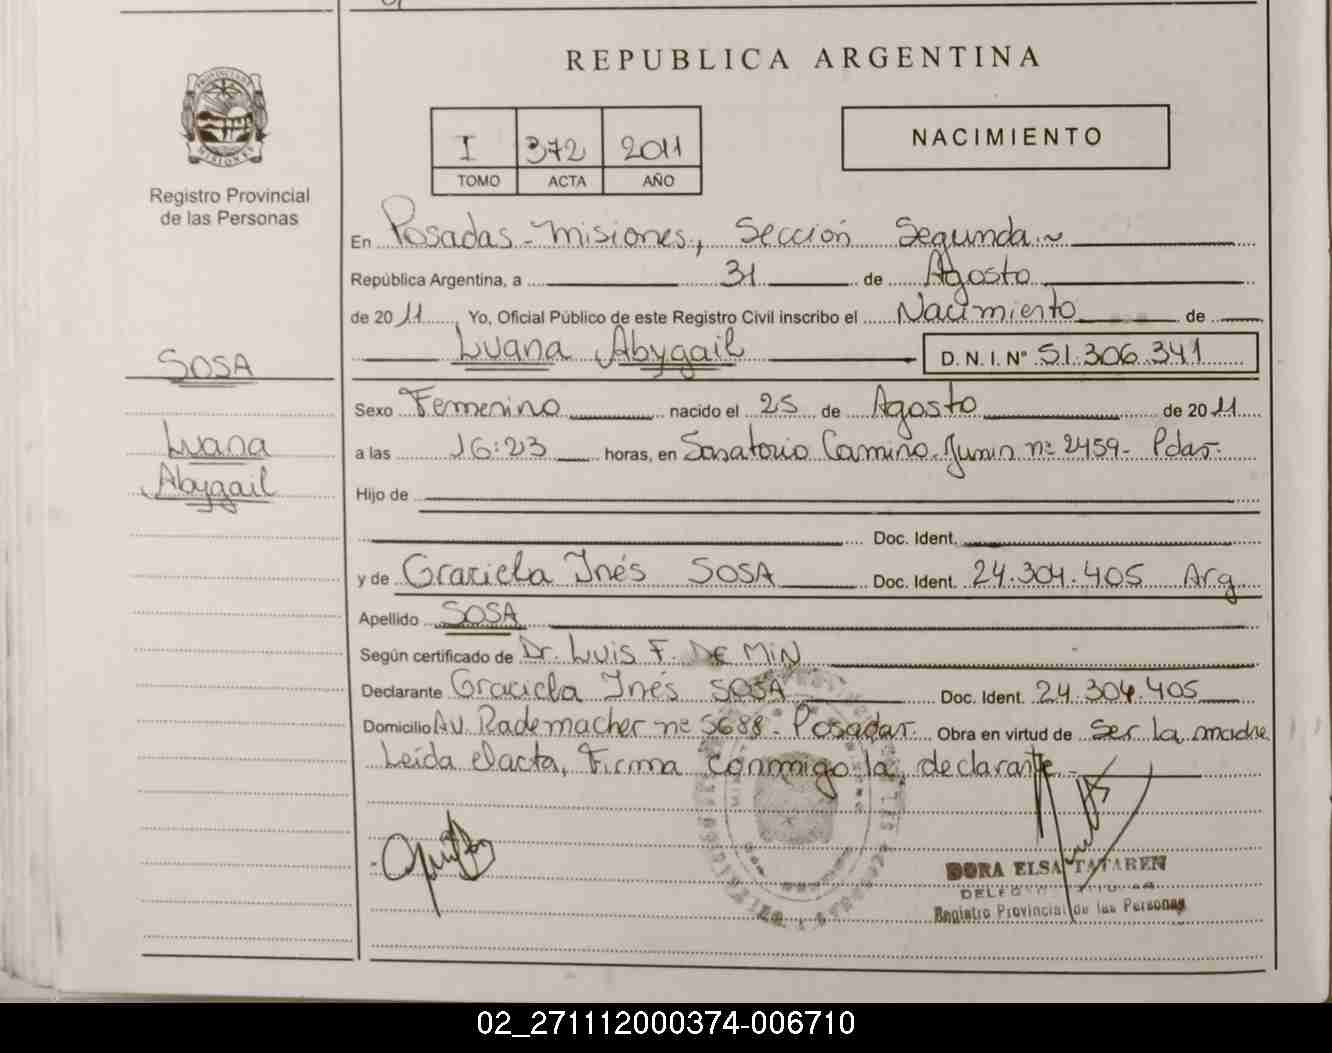 REPUBLICA ARGENTINA
PROVINCIA DE MISIONES
Registro Provincial
de las Personas
I 372 2011
TOMO ACTA AÑO
NACIMIENTO
En Posadas - Misiones, Sección Segunda
República Argentina, a 31 de Agosto
de 2011 Yo, Oficial Público de este Registro Civil inscribo el Nacimiento de
Luana Abygail D. N. I. Nº 51.306.341
SOSA
Luana
Abygail
Sexo Femenino nacido el 25 de Agosto de 2011
a las 16:23 horas, en Sanatorio Camino. Junin nº 2459 - Pdas.
Hijo de
Doc. Ident.
y de Graciela Inés SOSA Doc. Ident. 24.304.405 Arg
Apellido SOSA
Según certificado de Dr. Luis F. DE MIN
Declarante Graciela Inés SOSA Doc. Ident. 24.304.405
Domicilio Av. Rademacher nº 5688 - Posadas. Obra en virtud de Ser la madre
Leída el acta, Firma conmigo la declarante
DORA ELSA TATAREN
Registro Provincial de las Personas
02_271112000374-006710